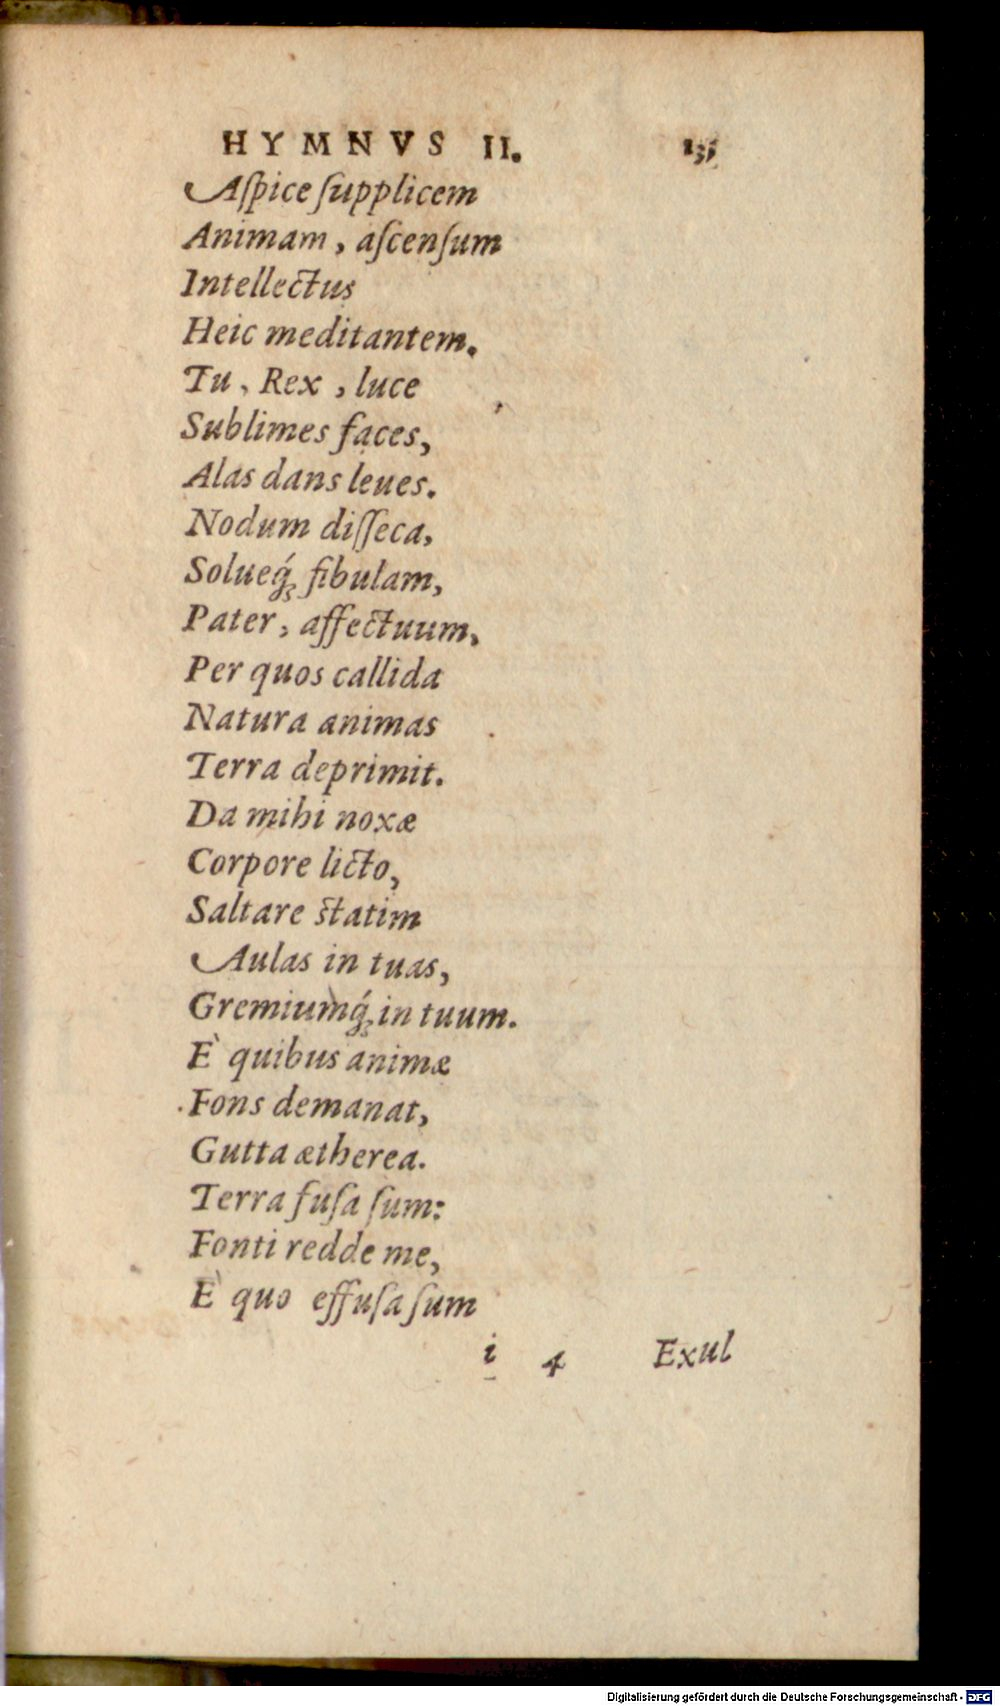 HYMNVS II. 135
Aſpice ſupplicem
Animam, aſcenſum
Intellectus
Heic meditantem.
Tu, Rex, luce
Sublimes faces,
Alas dans leues.
Nodum diſſeca,
Solueq́; fibulam,
Pater, affectuum,
Per quos callida
Natura animas
Terra deprimit.
Da mihi noxæ
Corpore licto,
Saltare statim
Aulas in tuas,
Gremiumq́; in tuum.
È quibus animæ
Fons demanat,
Gutta ætherea.
Terra fuſa ſum:
Fonti redde me,
È quo effuſa ſum
i 4 Exul
Digitalisierung gefördert durch die Deutsche Forschungsgemeinschaft - DFG